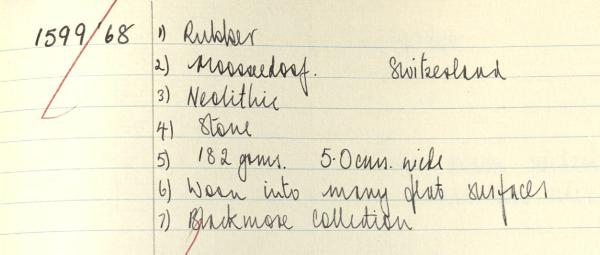 1599/68 1) Rubber
2) Moosseedorf. Switzerland
3) Neolithic
4) Stone
5) 182 gms. 5.0cms. wide
6) Worn into many flat surfaces
7) Blackmore Collection